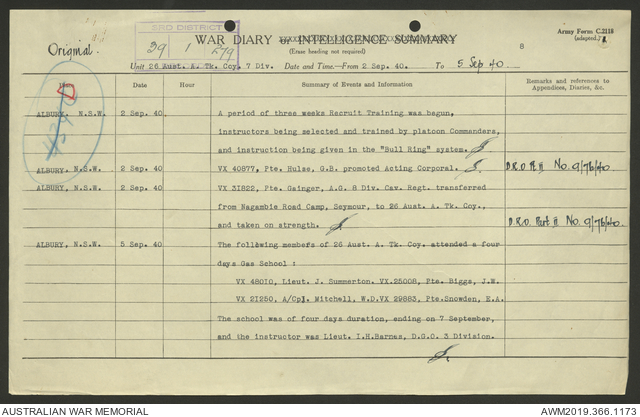 Original.
3RD DISTRICT
29 1 279
WAR DIARY or INTELLIGENCE SUMMARY
(Erase heading not required)
8
Army Form C.2118
(adapted.)
Unit 26 Aust. A. Tk. Coy. 7 Div. Date and Time.—From 2 Sep. 40. To 5 Sep 40.
Date Hour Summary of Events and Information Remarks and references to Appendices, Diaries, &c.
ALBURY, N.S.W. 2 Sep. 40. A period of three weeks Recruit Training was begun,
instructors being selected and trained by platoon Commanders,
and instruction being given in the "Bull Ring" system.
ALBURY, N.S.W. 2 Sep. 40 VX 40877, Pte. Hulse, G.B. promoted Acting Corporal. D.R.O. Pt. II No. 9/7/9/40
ALBURY, N.S.W. 2 Sep. 40 VX 31822, Pte. Gainger, A.G. 8 Div. Cav. Regt. transferred
from Nagambie Road Camp, Seymour, to 26 Aust. A. Tk. Coy.,
and taken on strength. D.R.O. Part II No. 9/7/9/40.
ALBURY, N.S.W. 5 Sep. 40 The following members of 26 Aust. A. Tk. Coy. attended a four
days Gas School :
VX 48070, Lieut. J. Summerton. VX.25008, Pte. Biggs, J.W.
VX 21250, A/Cpl. Mitchell, W.D. VX 29883, Pte. Snowden, E.A.
The school was of four days duration, ending on 7 September,
and the instructor was Lieut. I.H. Barnes, D.G.O. 3 Division.
AUSTRALIAN WAR MEMORIAL
AWM2019.366.1173